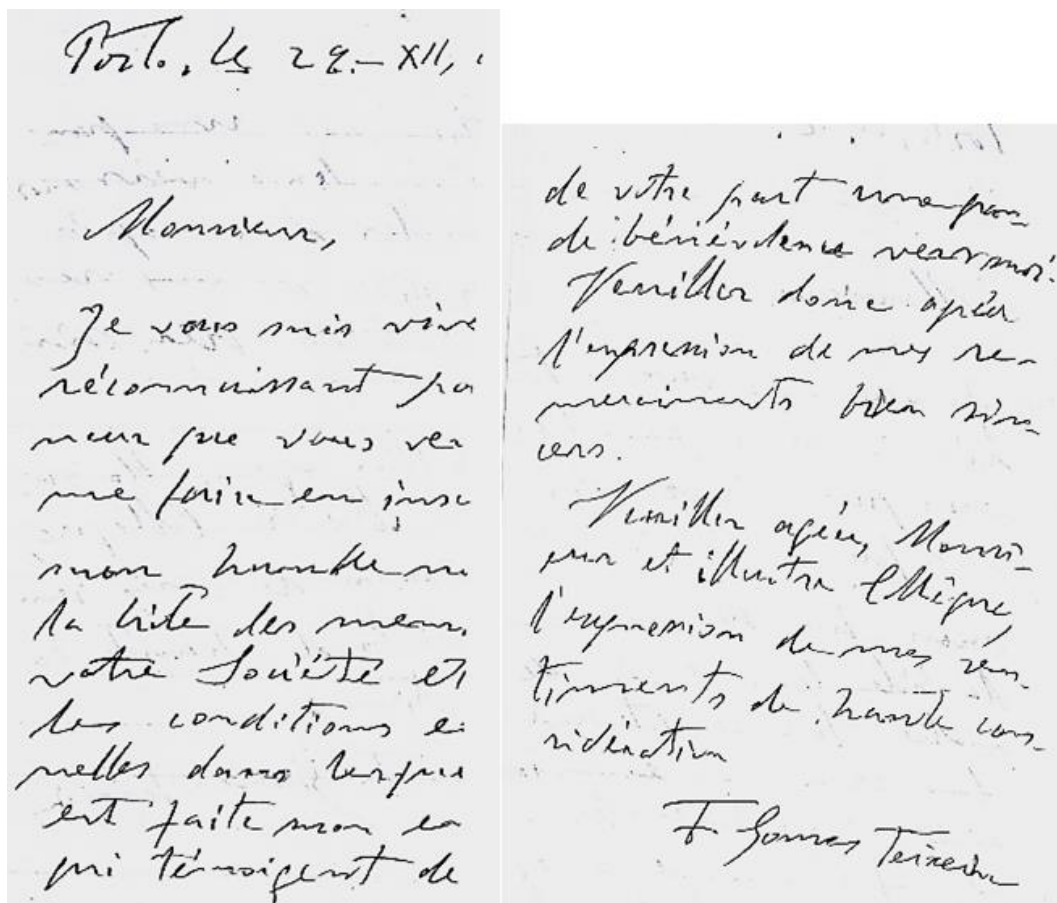 Porto, le 29-XII,
Monsieur,
Je vous suis vive
réconnaissant po
neur que vous ve
me faire en insc
mon humble no
la liste des mem
votre Société et
les conditions e
nelles dans lesque
est faite mon
qui témoigent de
de votre part une gran
de bénévolence vers moi.
Veuillez donc agréer
l'expression de mes re-
merciments bien sin-
cers.
Veuillez agréer, Monsi-
eur et illustre Collègue,
l'expression de mes sen-
timents de haute con-
sidération
F. Gomes Teixeira